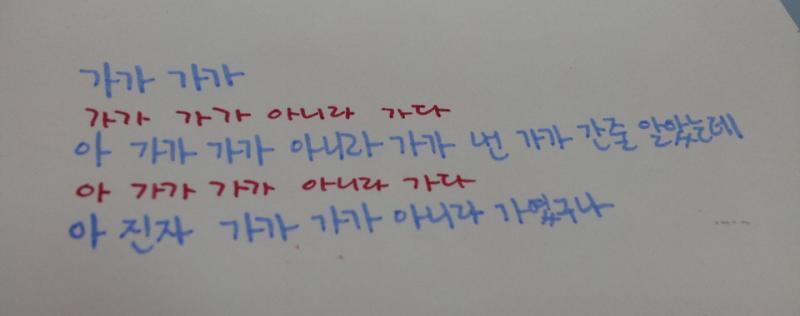 가가 가가
가가 가가 아니라 가다
아 가가 가가 아니라 가가 넌 가가 간줄 알았는데
아 가가 가가 아니라 가다
아 진자 가가 가가 아니라 가였구나